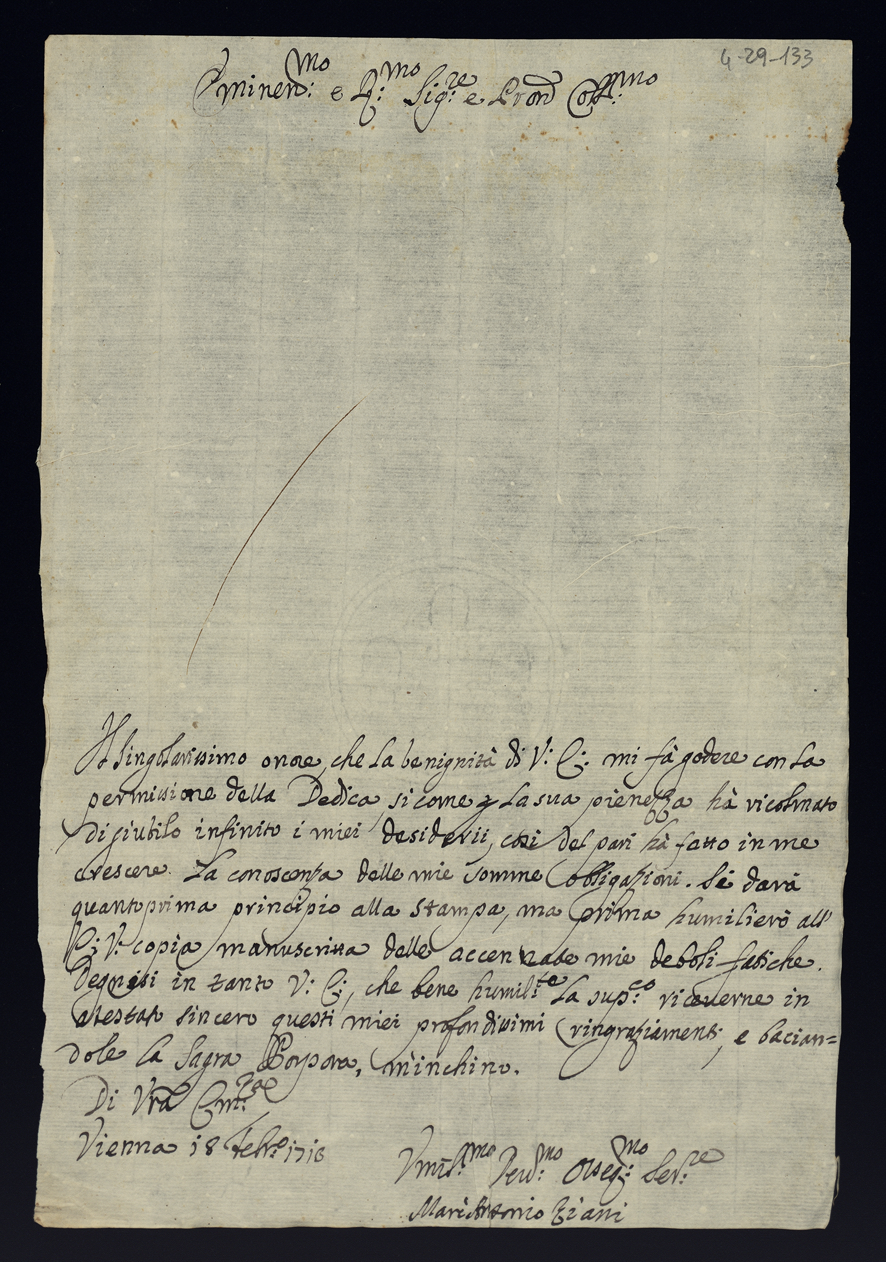 4-29-133
Eminen:mo e R:mo Sig:re e Pron Col:mo
Il singolarissimo onore, che la benignità di V: E: mi fà godere con la
permissione della Dedica, si come la sua pienezza hà ricolmato
di giubilo infinito i miei desiderii, così del pari hà fatto in me
crescere la conoscenza delle mie somme obbligazioni. Si darà
quanto prima principio alla stampa, ma prima humilierò all'
E: V: copia manuscritta delle accennate mie deboli fatiche.
Degnisi in tanto V: E:, che bene humil:te la sup:co riceverne in
atestato sincero questi miei profondissimi ringraziamenti, e bacian=
dole la Sagra Porpora, m'inchino.
Di Vra Em:
Vienna 18 Febr:o
Umil:mo Dev:mo Osseq:mo Ser:re
Marc'Antonio Ziani